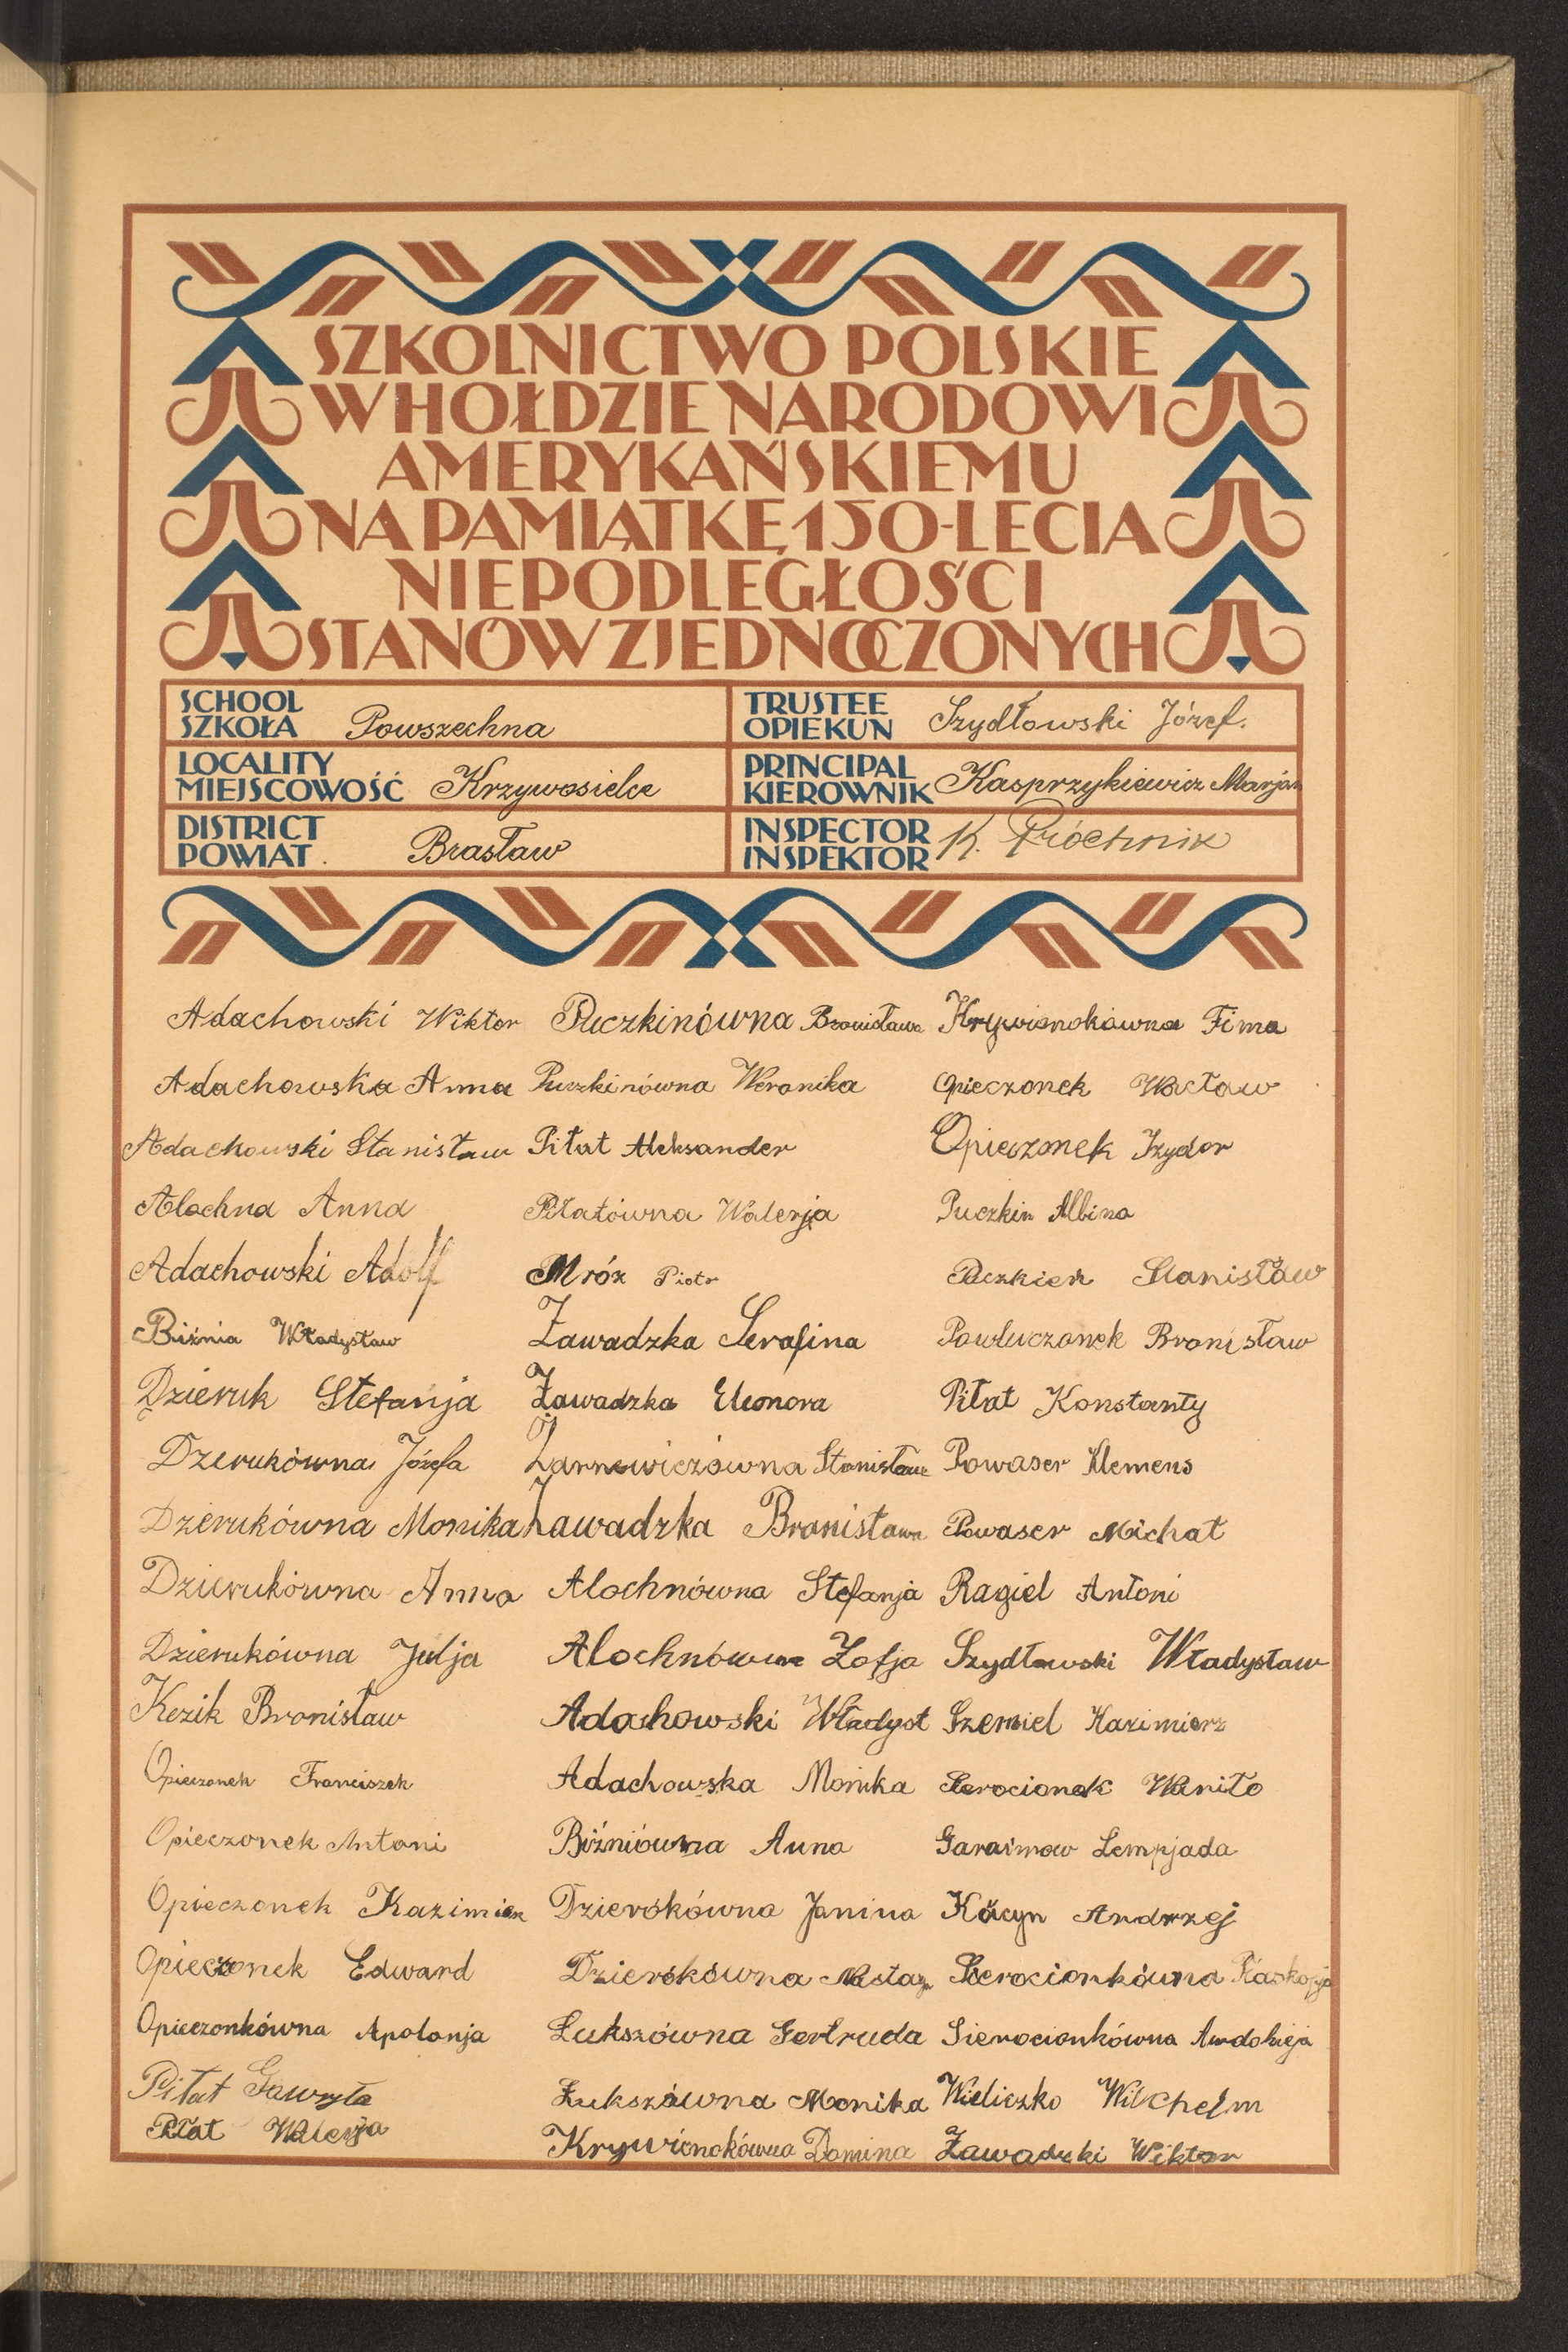 SZKOLNICTWO POLSKIE
W HOŁDZIE NARODOWI
AMERYKAŃSKIEMU
NA PAMIĄTKĘ 150-LECIA
NIEPODLEGŁOŚCI
STANÓW ZJEDNOCZONYCH
SCHOOL
SZKOŁA Powszechna
LOCALITY
MIEJSCOWOŚĆ Krzywosielce
DISTRICT
POWIAT. Brasław
TRUSTEE
OPIEKUN Szydłowski Józef.
PRINCIPAL
KIEROWNIK Kasprzykiewicz Marjan
INSPECTOR
INSPEKTOR K. Próchnik
Adachowski Wiktor
Adachowska Anna
Adachowski Stanisław
Alochna Anna
Adachowski Adolf
Biźnia Władysław
Dzieruk Stefanja
Dzerukówna Józefa
Dzerukówna Monika
Dzierukówna Anna
Dzierukówna Julja
Kezik Bronisław
Opieczonek Franciszek
Opieczonek Antoni
Opieczonek Kazimierz
Opieczonek Edward
Opieczonkówna Apolonja
Piłat Gawryła
Piłat Walerja
Puczkinówna Bronisława
Puczkinówna Weronika
Piłat Aleksander
Piłatówna Walerja
Mróz Piotr
Zawadzka Serafina
Zawadzka Eleonora
Żarnowiczówna Stanisława
Zawadzka Bronisława
Alochnówna Stefanja
Alochnówna Zofja
Adachowski Władyst
Adachowska Monika
Biźniówna Anna
Dzierókówna Janina
Dzierókówna Nastazja
Łukszówna Gertruda
Łukszówna Monika
Krywionokówna Domina
Krywionokówna Fima
Opieczonek Wacław
Opieczonek Izydor
Puczkin Albina
Puczkien Stanisław
Powluczonek Bronisław
Piłat Konstanty
Powaser Klemens
Powaser Michał
Ragiel Antoni
Szydłowski Władysław
Szemiel Kazimierz
Sierocionek Waniło
Garasimow Lempjada
Kacyn Andrzej
Sierocionkówna
Sierocionkówna Awdokieja
Wieliczko Wilchelm
Zawadzki Wiktor